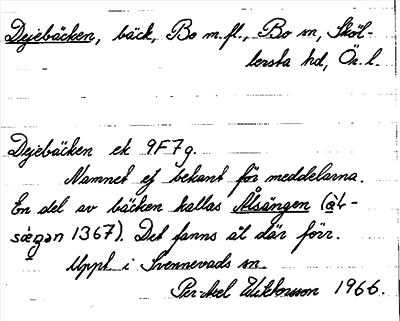 Dejebäcken, bäck, Bo m.fl., Bo sn, Sköl-
lersta hd, Ör. l.
Dejebäcken ek 9F7g.
Namnet ej bekant för meddelarna.
En del av bäcken kallas Ålsängen (å̀l-
sæ̀gən 1367). Det fanns ål där förr.
Uppt. i Svennevads sn.
Per-Axel 1966.